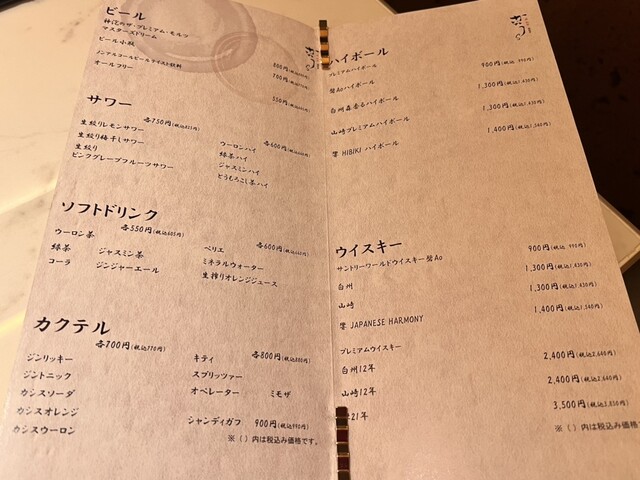 ビール
神泡のザ・プレミアム・モルツ
マスターズドリーム
ビール小瓶 880円
ノンアルコールビールテイスト飲料 700円
オールフリー
550円
サワー
各750円(税込825円)
生絞りレモンサワー
生絞り梅干しサワー
生絞り
ピンクグレープフルーツサワー
各600円(税込660円)
ウーロンハイ
緑茶ハイ
ジャスミンハイ
とうもろこし茶ハイ
ソフトドリンク
各550円(税込605円)
ウーロン茶
緑茶 ジャスミン茶
コーラ ジンジャーエール
各600円(税込660円)
ペリエ
ミネラルウォーター
生搾りオレンジジュース
カクテル
各700円(税込770円)
ジンリッキー
ジントニック
カシスソーダ
カシスオレンジ
カシスウーロン
各800円(税込880円)
キティ
スプリッツァー
オペレーター ミモザ
シャンディガフ 900円(税込990円)
※()内は税込み価格です。
ハイボール
プレミアムハイボール 900円(税込 990円)
碧Aoハイボール 1,300円(税込1,430円)
白州森香るハイボール 1,300円(税込1,430円)
山崎プレミアムハイボール 1,400円(税込1,540円)
響 HIBIKI ハイボール
ウイスキー
サントリーワールドウイスキー碧Ao 900円(税込 990円)
白州 1,300円(税込1,430円)
山崎 1,300円(税込1,430円)
響 JAPANESE HARMONY 1,400円(税込1,540円)
プレミアムウイスキー
白州12年 2,400円(税込2,640円)
山崎12年 2,400円(税込2,640円)
21年 3,500円(税込3,850円)
※()内は税込み価格